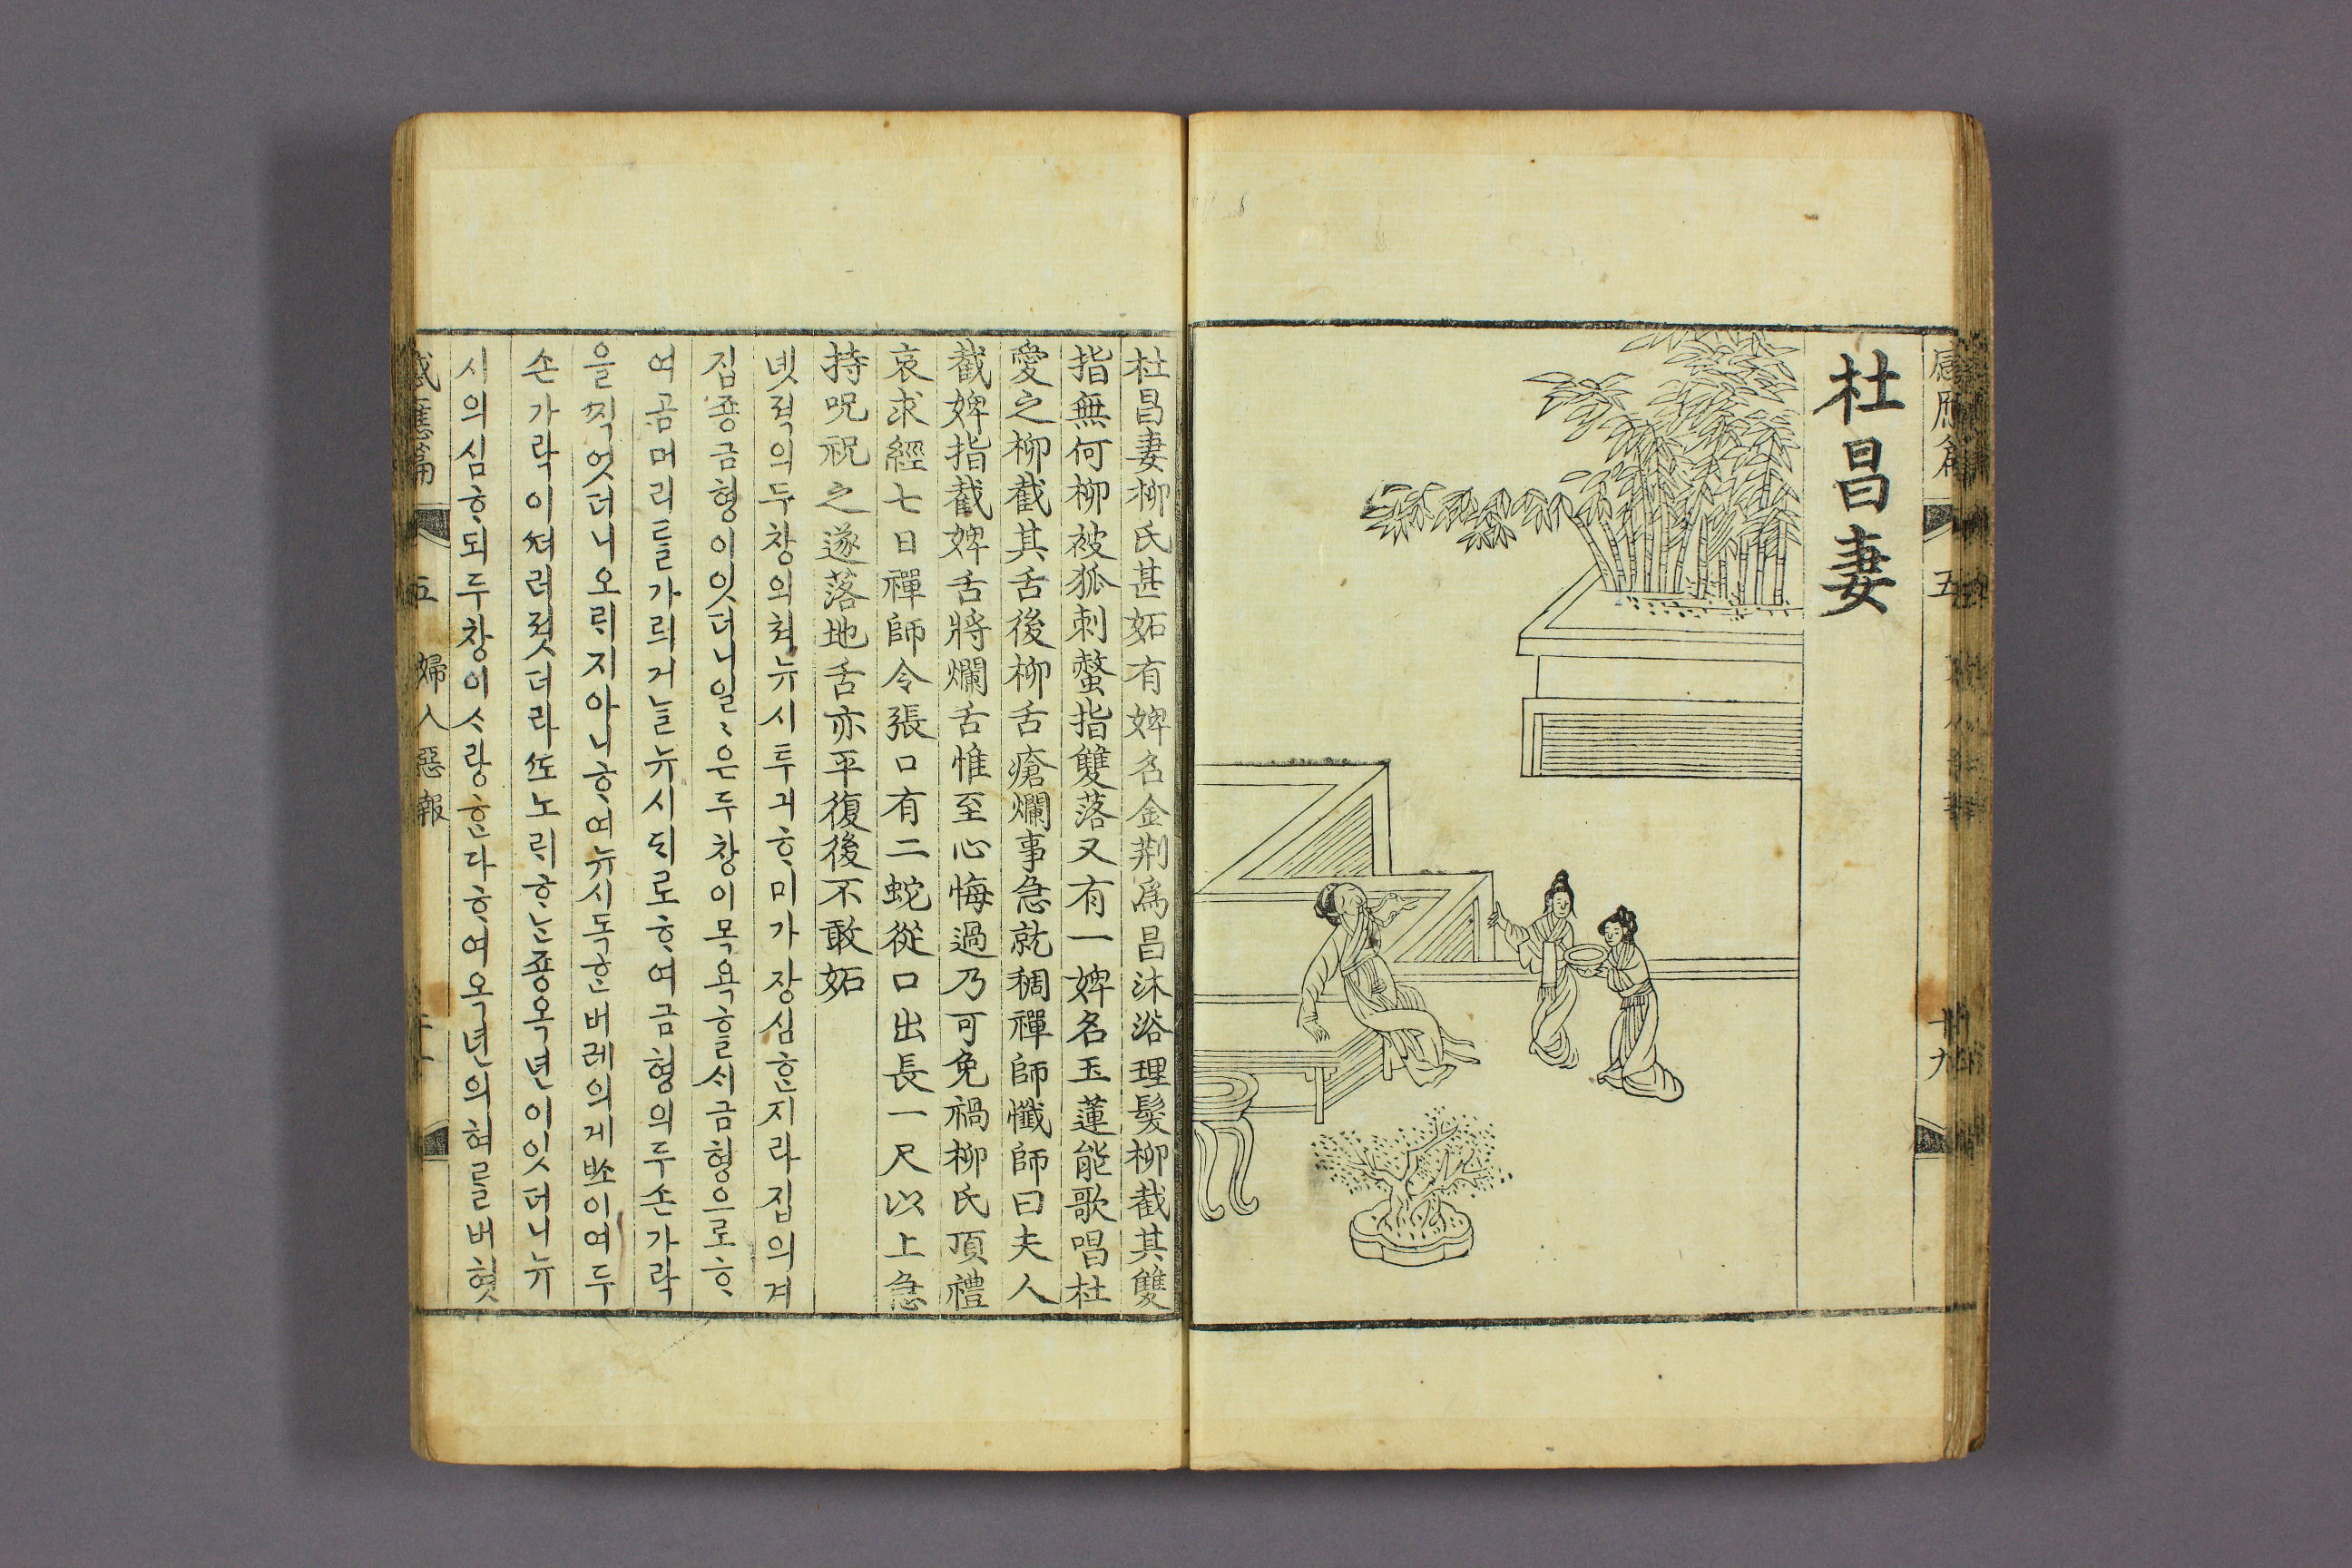 杜昌妻
杜昌妻柳氏甚妬有婢名金荆爲昌沐浴理髮柳截其雙
指無何柳被狐刺螫指雙落又有一婢名玉蓮能歌唱杜
愛之柳截其舌後柳舌瘡爛事急就稠禪師懺師曰夫人
截婢指截婢舌將爛舌惟至心悔過乃可免禍柳氏頂禮
哀求經七日禪師令張口有二蛇從口出長一尺以上急
持呪祝之遂落地舌亦平復後不敢妬
녯젹의두챵의쳐뉴시투긔ᄒᆞ미가쟝심ᄒᆞᆫ지라집의겨
집죵금형이잇더니일〻은두챵이목욕ᄒᆞᆯᄉᆡ금형으로ᄒᆞ
여곰머리ᄅᆞᆯ가릐거ᄂᆞᆯ뉴시되로ᄒᆞ여금형의두손가락
을ᄶᅵᆨ엇더니오ᄅᆡ지아니ᄒᆞ여뉴시독ᄒᆞᆫ버레의게ᄡᅩ이여두
손가락이ᄶᅥ러졋더라ᄯᅩ노ᄅᆡᄒᆞᄂᆞᆫ죵옥년이잇더니뉴
시의심ᄒᆞ되두챵이ᄉᆞ랑ᄒᆞᆫ다ᄒᆞ여옥년의혀ᄅᆞᆯ버혓
感應篇 五 婦人惡報